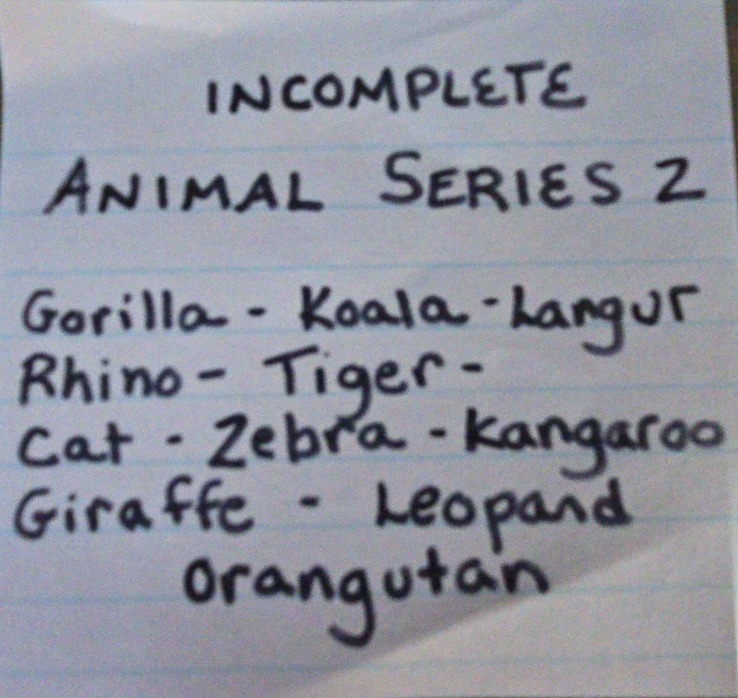 INCOMPLETE
ANIMAL SERIES 2
Gorilla - Koala - Langur
Rhino - Tiger -
Cat - Zebra - Kangaroo
Giraffe - Leopard
Orangutan